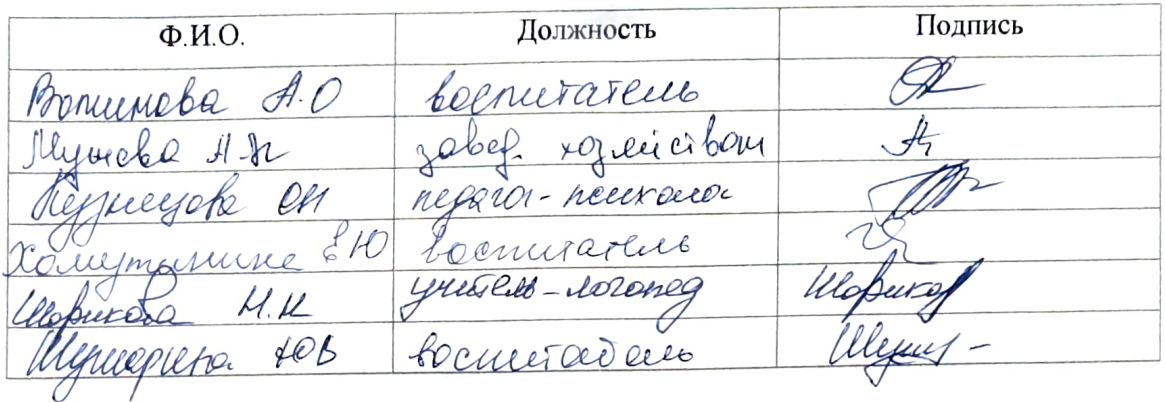 Ф.И.О. Должность Подпись
А.О воспитатель
завед. хозяйством
Кузнецова ОН педагог-психолог
Хомутинина ЕЮ воспитатель
Шарикова Н.Н учитель-логопед Шариков
ЮВ воспитатель